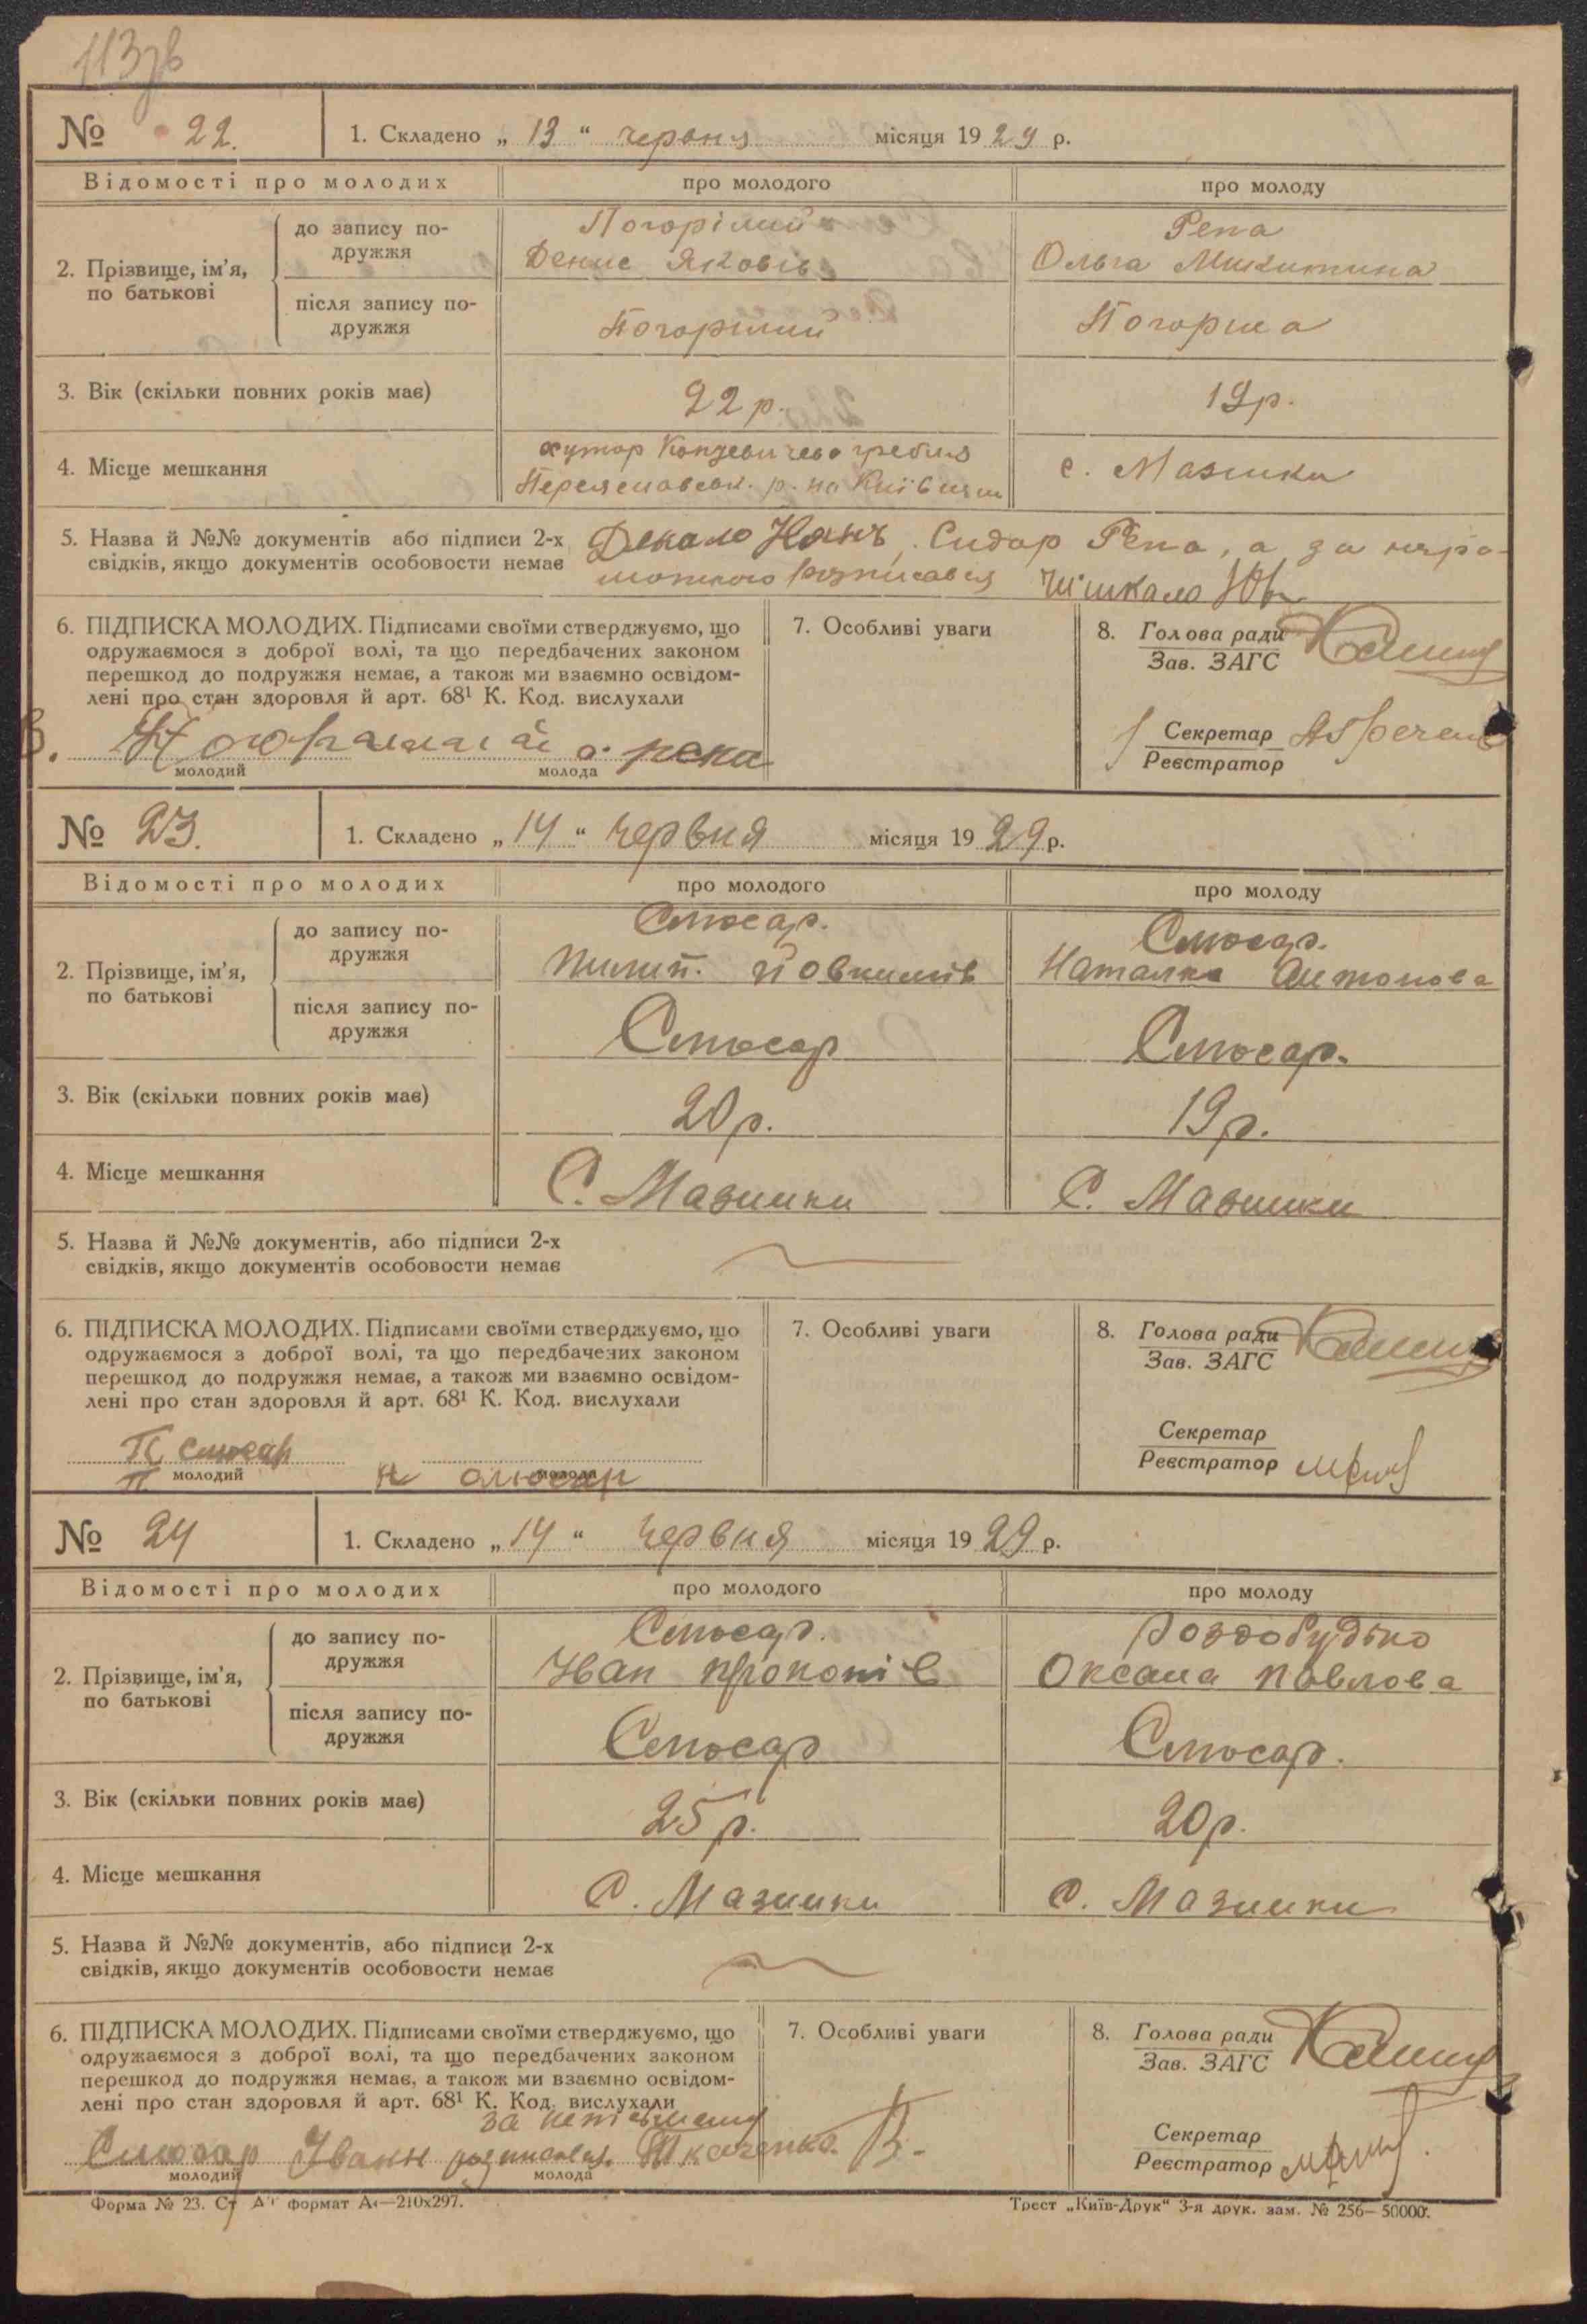 113зв
№ 22. 1. Складено „ 13 “ червня місяця 19 29 р.
Відомості про молодих про молодого про молоду
2. Прізвище, ім'я, по батькові
до запису по-
дружжя
Погорілий
Денис Яковів
Репа
Ольга Микитина
після запису по-
дружжя
Погорілий
Погоріла
3. Вік (скільки повних років має) 22 р. 19р.
4. Місце мешкання
хутор гребля
Переяславськ. р. на Київщин
с. Мазінки
5. Назва й №№ документів або підписи 2-х
свідків, якщо документів особовости немає
Сидор Репа, а за негра-
мотного розписався
6. ПІДПИСКА МОЛОДИХ. Підписами своїми стверджуємо, що
одружаємося з доброї волі, та що передбачених законом
перешкод до подружжя немає, а також ми взаємно освідом-
лені про стан здоровля й арт. 68¹ К. Код. вислухали
молодий молода
о репа
7. Особливі уваги
8. Голова ради
Зав. ЗАГС
Секретар
Реєстратор
№ 23. 1. Складено „ 14 “ Червня місяця 19 29 р.
Відомості про молодих про молодого про молоду
2. Прізвище, ім'я, по батькові
до запису по-
дружжя
Слюсар.
Пилип. Йовхимів
Слюсар.
Наталка Антонова
після запису по-
дружжя
Слюсар
Слюсар.
3. Вік (скільки повних років має) 20 р. 19 р.
4. Місце мешкання С. Мазинки С. Мазинки
5. Назва й №№ документів, або підписи 2-х
свідків, якщо документів особовости немає
6. ПІДПИСКА МОЛОДИХ. Підписами своїми стверджуємо, що
одружаємося з доброї волі, та що передбачених законом
перешкод до подружжя немає, а також ми взаємно освідом-
лені про стан здоровля й арт. 68¹ К. Код. вислухали
П Слюсар
молодий молода
Н слюсар
7. Особливі уваги
8. Голова ради
Зав. ЗАГС
Секретар
Реєстратор
№ 24 1. Складено „ 14 “ Червня місяця 19 29 р.
Відомості про молодих про молодого про молоду
2. Прізвище, ім'я, по батькові
до запису по-
дружжя
Слюсар.
Іван Прокопів
Роздобудько
Оксана Павлова
після запису по-
дружжя
Слюсар
Слюсар.
3. Вік (скільки повних років має) 25 р. 20 р.
4. Місце мешкання С. Мазинки С. Мазинки
5. Назва й №№ документів, або підписи 2-х
свідків, якщо документів особовости немає
6. ПІДПИСКА МОЛОДИХ. Підписами своїми стверджуємо, що
одружаємося з доброї волі, та що передбачених законом
перешкод до подружжя немає, а також ми взаємно освідом-
лені про стан здоровля й арт. 68¹ К. Код. вислухали
Слюсар Іванн Ткаченко В.
молодий молода
7. Особливі уваги
8. Голова ради
Зав. ЗАГС
Секретар
Реєстратор
Форма № 23. формат —210x297.
Трест „Київ-Друк“ 3-я друк. зам. № 256—50000.